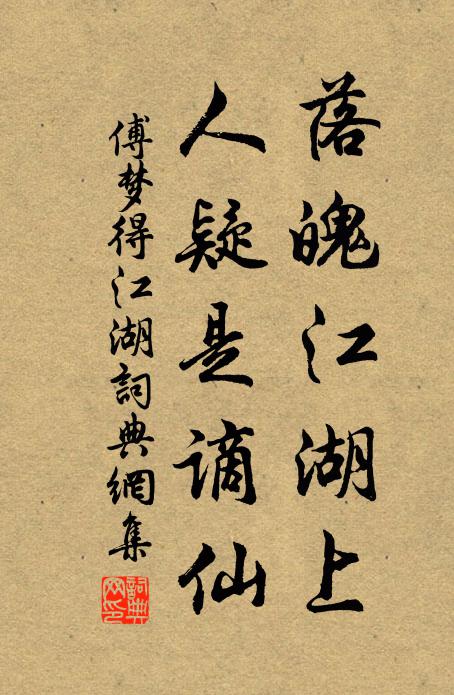 落魄江湖上
人疑是谪仙
傅梦得江湖詞典網集
詞典网印